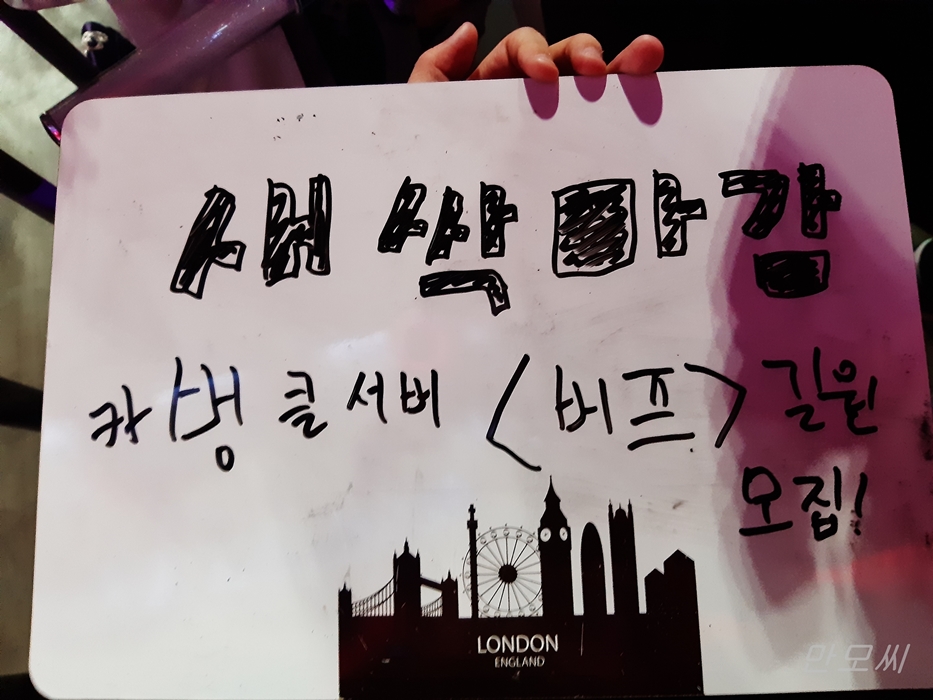 새싹마감
카생클서버 <버프> 길원
모집!
LONDON
ENGLAND
만모씨